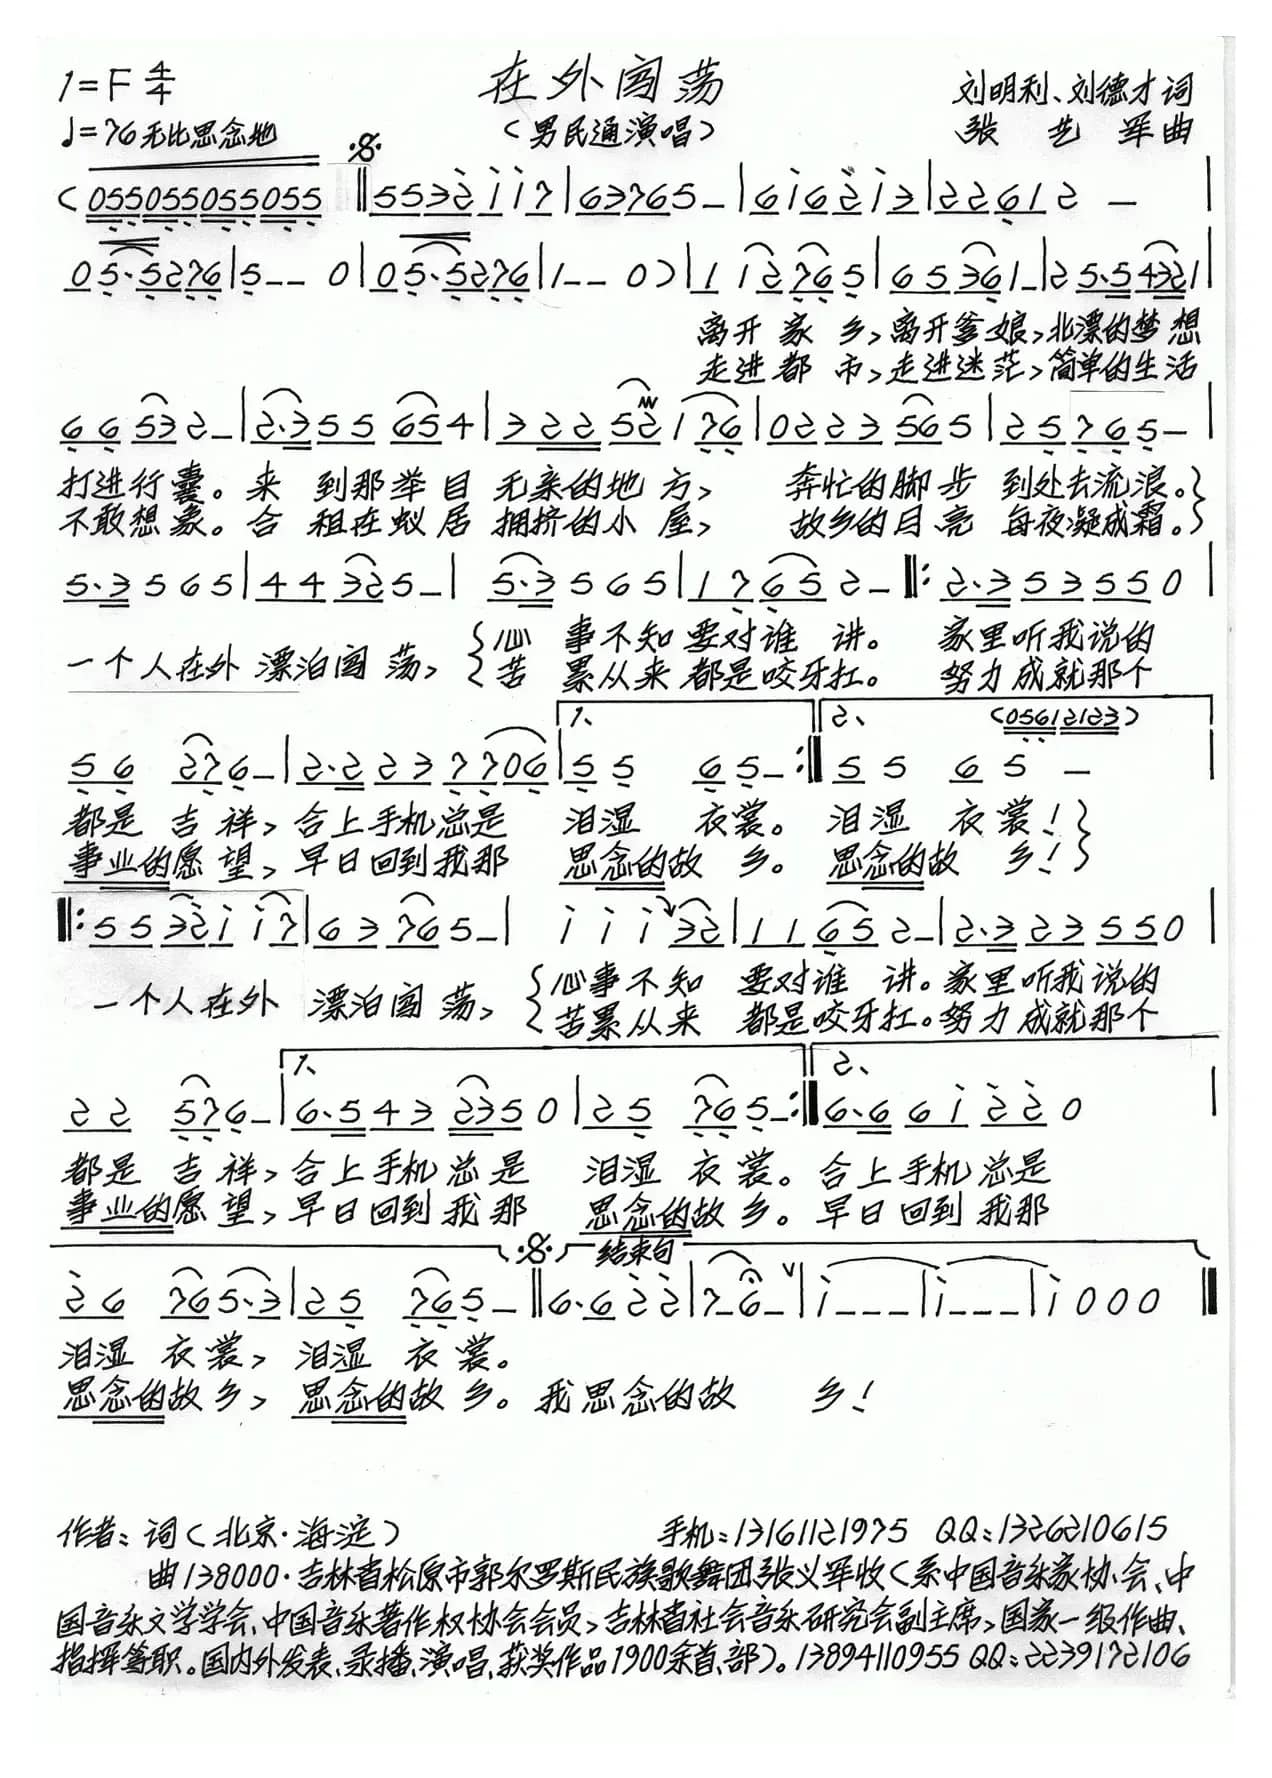 1=F 4/4
在外闯荡
刘明利、刘德才词
♩=76 无比思念地
(男民通演唱)
张艺军曲
(055055055055 ‖5532117|63765-|616213|22612-|
05·5276|5--0|05·5276|1--0)|112765|65361-|25·54321|
离开家乡,离开爹娘,北漂的梦想
走进都市,走进迷茫,简单的生活
66532-|2·355654|32252176|0223565|25765-|
打进行囊。来到那举目无亲的地方,奔忙的脚步到处去流浪。
不敢想象。合租在蚁居拥挤的小屋,故乡的月亮每夜凝成霜。
5·3565|44325-|5·3565|17652-‖:2·353550|
一个人在外漂泊闯荡,
心事不知要对谁讲。家里听我说的
苦累从来都是咬牙扛。努力成就那个
1、 2、 (05612123)
56276-|2·2237706|5565-:‖5565-
都是吉祥,合上手机总是泪湿衣裳。泪湿衣裳!
事业的愿望,早日回到我那思念的故乡。思念的故乡!
‖:5532117|63765-|11132|11652-|2·323550|
一个人在外漂泊闯荡,
心事不知要对谁讲。家里听我说的
苦累从来都是咬牙扛。努力成就那个
1、 2、
22576-|6·5432350|25765-:‖6·661220|
都是吉祥,合上手机总是泪湿衣裳。合上手机总是
事业的愿望,早日回到我那思念的故乡。早日回到我那
结束句
26765·3|25765-‖6·622|7-6-|1---|1---|1000‖
泪湿衣裳,泪湿衣裳。
思念的故乡,思念的故乡。我思念的故乡!
作者:词(北京·海淀) 手机:13161121975 QQ:1326210615
曲138000·吉林省松原市郭尔罗斯民族歌舞团张义军收(系中国音乐家协会、中
国音乐文学学会、中国音乐著作权协会会员,吉林省社会音乐研究会副主席,国家一级作曲、
指挥等职。国内外发表、录播、演唱、获奖作品1900余首、部)。13894110955 QQ:2239172106